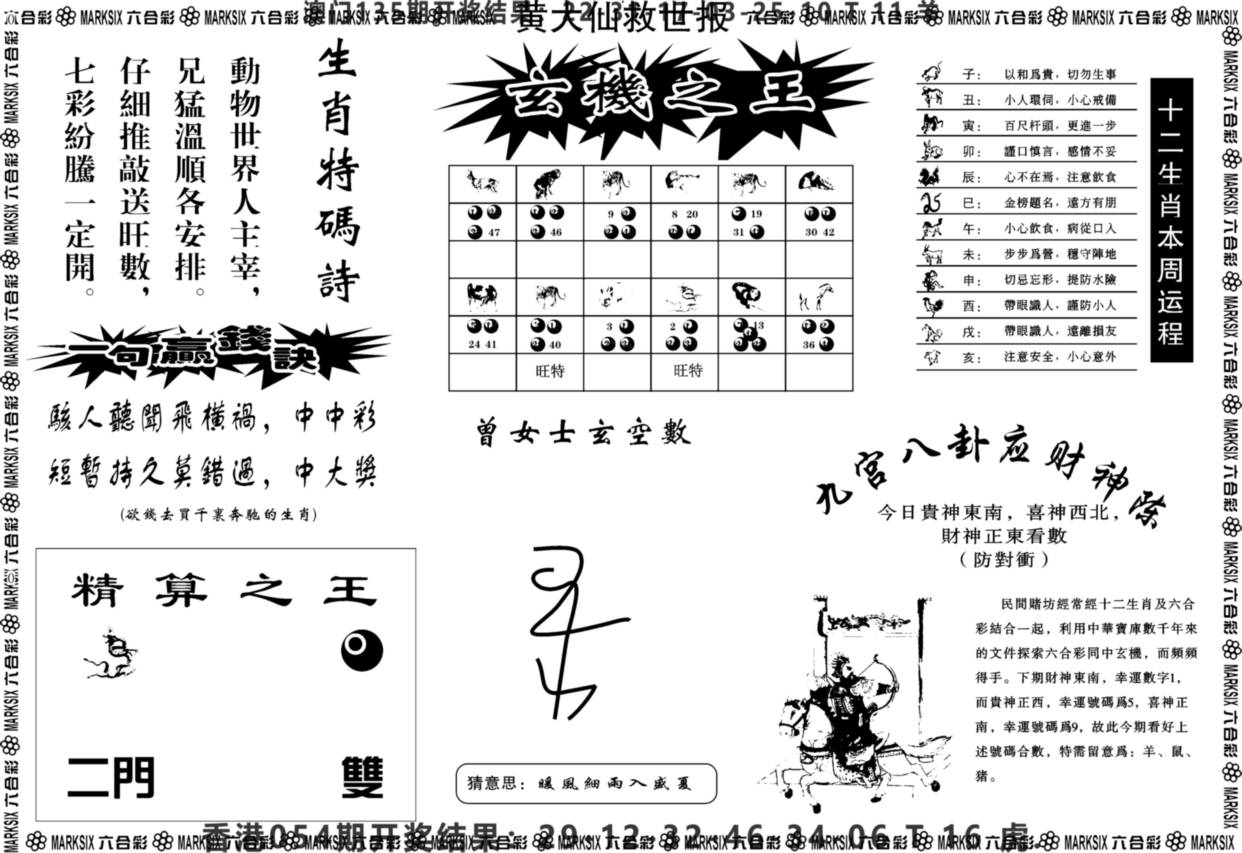 黄大仙救世报
澳门135期开奖结果
生肖特碼詩
動物世界人主宰，
兄猛溫順各安排。
仔細推敲送旺數，
七彩紛騰一定開。
一句贏錢訣
駭人聽聞飛橫禍，中中彩
短暫持久莫錯過，中大獎
(欲錢去買千裏奔馳的生肖)
精算之王
二門 雙
玄機之王
47 46 9 8 20 19 31 30 42
24 41 40 3 2 13 36
旺特 旺特
曾女士玄空數
猜意思：暖風細雨入盛夏
十二生肖本周运程
子：以和爲貴，切勿生事
丑：小人環伺，小心戒備
寅：百尺杆頭，更進一步
卯：謹口慎言，感情不妥
辰：心不在焉，注意飲食
巳：金榜題名，遠方有朋
午：小心飲食，病從口入
未：步步爲營，穩守陣地
申：切忌忘形，提防水險
酉：帶眼識人，謹防小人
戌：帶眼識人，遠離損友
亥：注意安全，小心意外
宮八卦应财神
今日貴神東南，喜神西北，
財神正東看數
（防對衝）
民間賭坊經常經十二生肖及六合
彩結合一起，利用中華寶庫數千年來
的文件探索六合彩同中玄機，而頻頻
得手。下期財神東南，幸運數字1，
而貴神正西，幸運號碼爲5，喜神正
南，幸運號碼爲9，故此今期看好上
述號碼合數，特需留意爲：羊、鼠、
豬。
香港054期开奖结果：29 12 32 46 34 06 T 16 虎
MARKSIX 六合彩